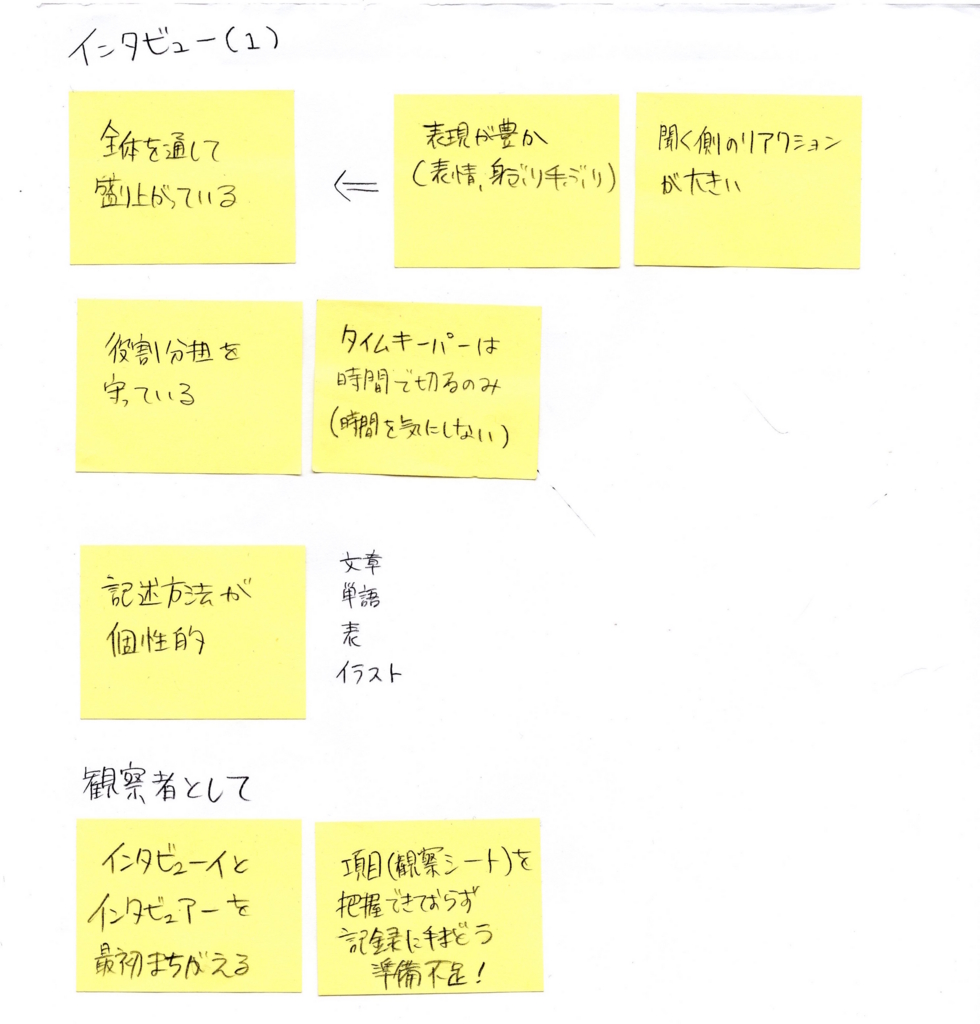 インタビュー(1)
全体を通して
盛り上がっている
⇐
表現が豊か
(表情、身ぶり手ぶり)
聞く側のリアクション
が大きい
役割分担を
守っている
タイムキーパーは
時間で切るのみ
(時間を気にしない)
記述方法が
個性的
文章
単語
表
イラスト
観察者として
インタビューイと
インタビュアーを
最初まちがえる
項目(観察シート)を
把握できておらず
記録に手まどう
準備不足!